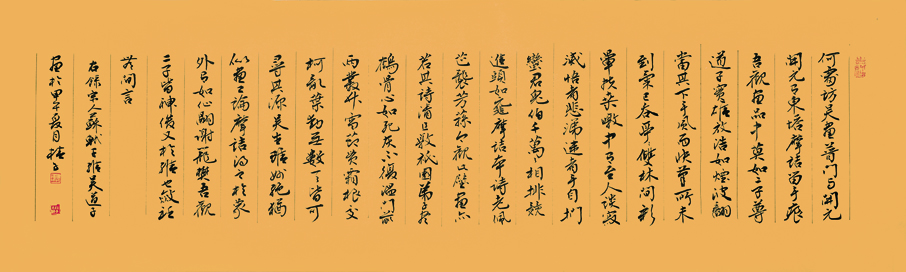 何處访吴畫普门与開元
開元有東塔摩诘留手痕
吾觀畫品中莫如二子尊
道子實雄放浩如海波翻
當其下手风雨快筆所未
到氣已吞亭亭雙林间彩
暈扶桑暾中有至人谈寂
滅悟者悲涕迷者手自捫
蠻君鬼伯千萬萬相排競
進頭如黿摩诘本诗老佩
芷襲芳蓀今觀此壁畫亦
若其诗清且敦祇園弟子盡
鶴骨心如死灰不復温门前
两叢竹雪節贯霜根交
柯亂葉動無數一一皆可
尋其源吴生雖妙绝猶
以畫工論摩诘得之於象
外有如仙翮謝籠樊吾觀
二子皆神俊又於維也斂衽
無间言
右錄宋人蘇軾王維吴道子
畫於甲午夏月